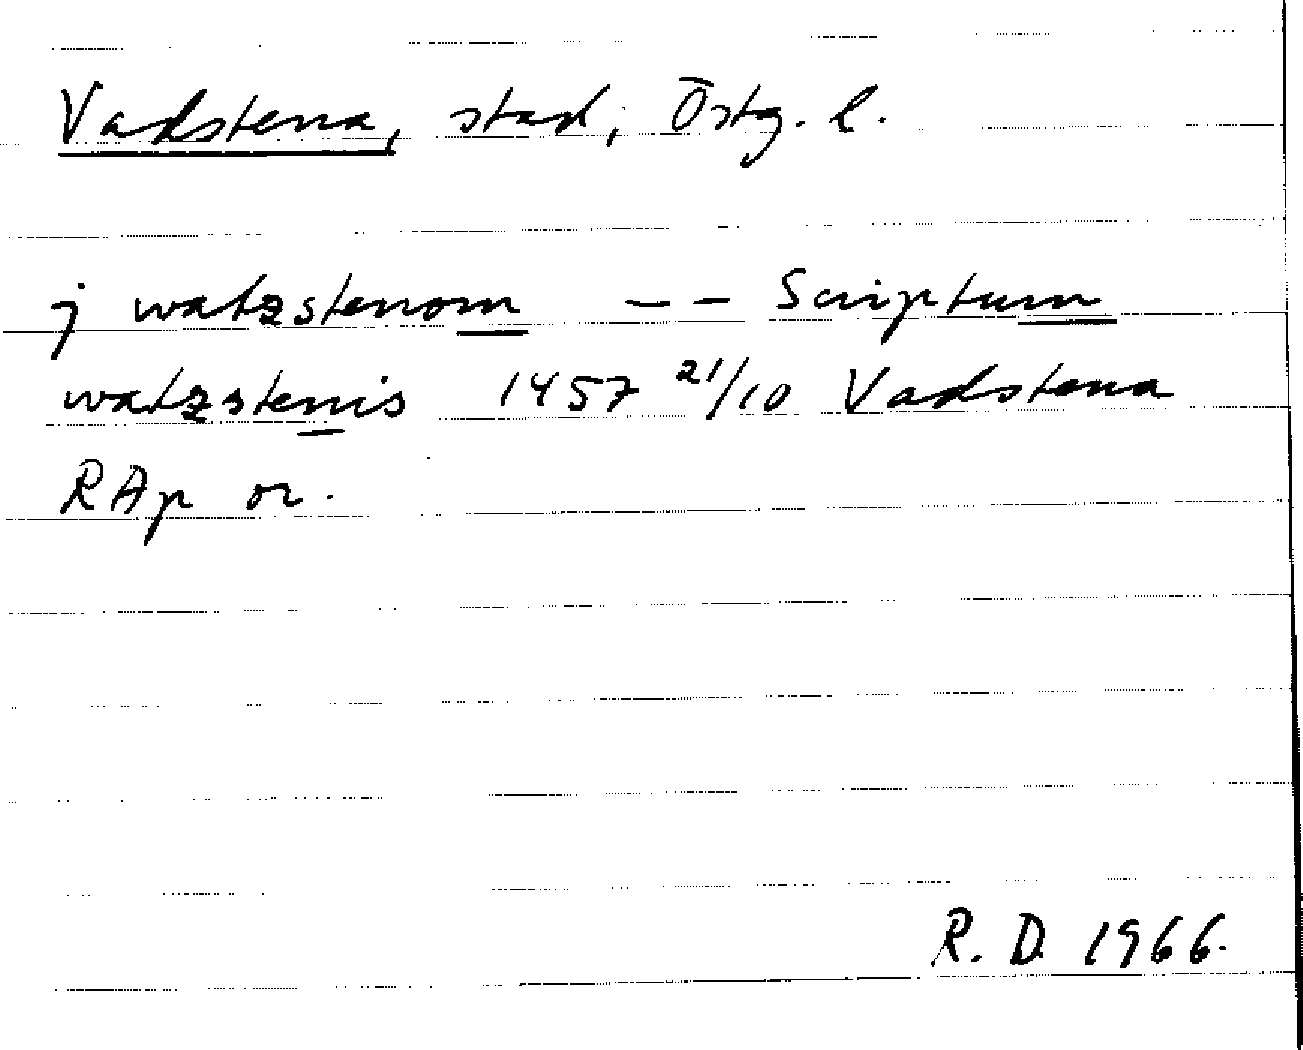 Vadstena, stad, Östg. l.
j watzstenom – – Scriptum
watzstenis 1457 21/10 Vadstena
RAp or.
R. D. 1966.